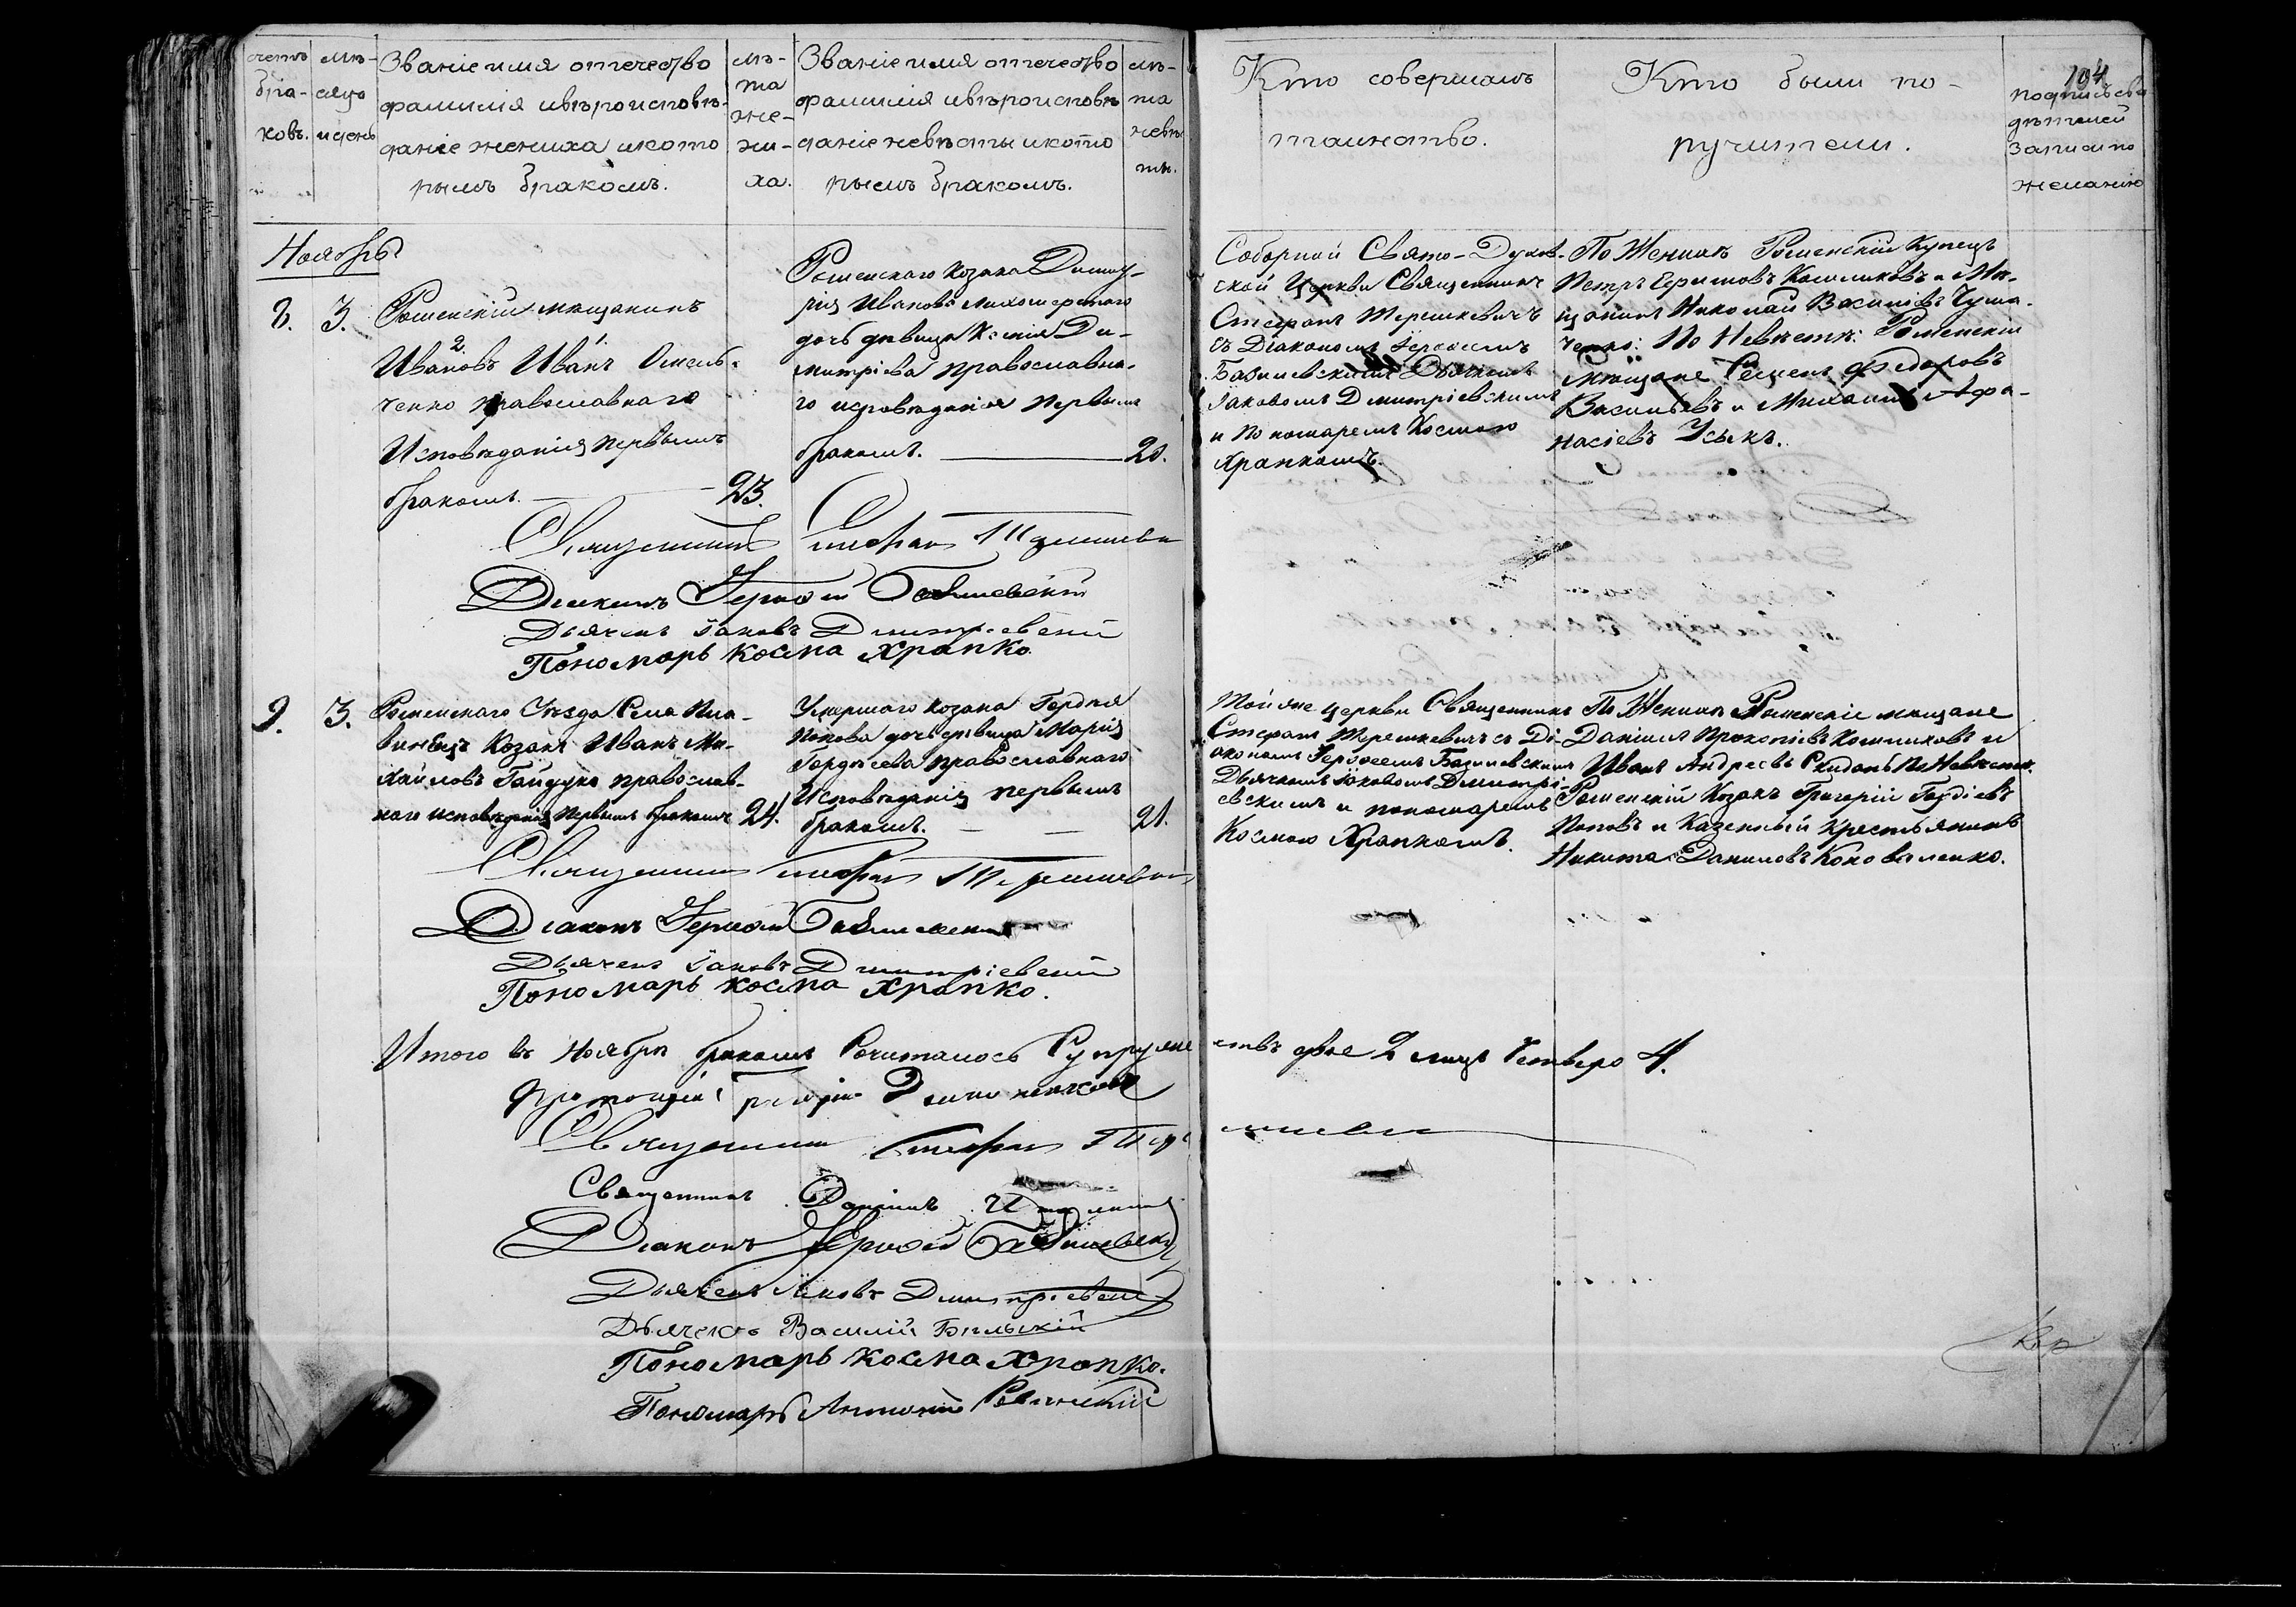 счетъ
бра-
ковъ.
мѣ-
сяцъ
и день
Званіе имя отчество
фамилія и вѣроисповѣ-
даніе жениха и кото
рымъ бракомъ.
лѣ-
та
же-
ни-
ха.
Званіе имя отчество
фамилія и вѣроисповѣ
даніе невѣсты и кото
рымъ бракомъ.
лѣ-
та
невѣс
ты.
Кто совершалъ
таинство.
Кто были по-
ручители.
104
подпись сви
дѣтелей
записи по
желанію
Ноябрь
8.
3.
Роменскій мѣщанинъ
2 1
Ивановъ Иванъ Омель-
ченко православнаго
Исповѣданія первымъ
бракомъ.
23.
Роменскаго козака Димит-
рія Иванова
дочь дѣвица Ксенія Ди-
митріева православна-
го исповѣданія первымъ
бракомъ.
20.
Соборной Свято-Духов-
ской Церкви Священникъ
Стефанъ Терешкевичъ
съ Діакономъ Іерофеемъ
Базилевскимъ Дьячкомъ
Іаковомъ Дмитріевскимъ
и Пономаремъ Космою
Храпкомъ.
По Женихѣ Роменскій Купецъ
Петръ Колесниковъ и Мѣ-
щанинъ Николай Васильевъ Чума-
ченко: По Невѣстѣ: Роменскіи
Мѣщане Семенъ Федоровъ
Васильевъ и Михаилъ Афа-
насіевъ Усыкъ.
Священникъ Стефанъ Терешкевич
Діаконъ Іерофей Базилевскій
Дьячекъ Іаковъ Дмитріевскій
Пономарь Косма Храпко.
9.
3.
Роменскаго Уѣзда Села Пла-
винищъ Козакъ Иванъ Ми-
хайловъ Гайдука православ-
наго исповѣданія первымъ бракомъ
24.
Умершаго козака Гордѣя
Попова дочь дѣвица Марія
Гордѣева православнаго
Исповѣданія первымъ
бракомъ.
21.
Той же церкви Священникъ
Стефанъ Терешкевичъ съ Ді-
акономъ Іерофеемъ Базилевскимъ
Дьячкомъ Іаковомъ Дмитрі-
евскимъ и пономаремъ
Космою Храпкомъ.
По Женихѣ Роменскіе мѣщане
Даніилъ Прокопіевъ и
Иванъ Андреевъ Скиданъ По Невѣстѣ.
Роменскій Козакъ Григорій Гордіевъ
Поповъ и Казенный Крестьянинъ
Никита Даниловъ Коноваленко.
Священникъ Стефанъ Терешкевич
Діаконъ Іерофей Базилевскій
Дьячекъ Іаковъ Дмитріевскій
Пономарь Косма Храпко.
Итого въ Ноябрѣ бракомъ Сочиталось Супруже
ствъ двое 2 лицъ Четверо 4.
Священникъ Стефанъ Тере
шкевич
Священникъ Даніилъ
Діаконъ Іерофей Базилевскій
Дьячекъ Іаковъ Дмитріевскій
Дьячекъ Василій Бѣльскій
Пономарь Косма Храпко.
Пономарь Антоній